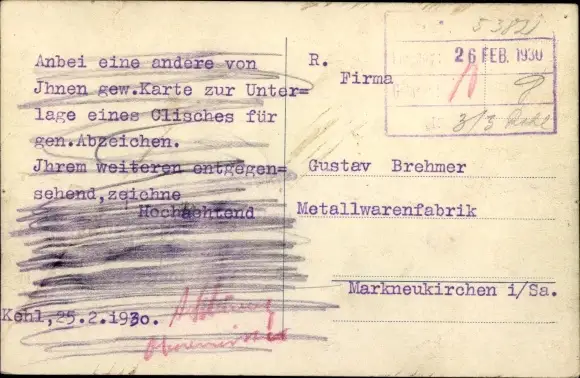 Anbei eine andere von
Jhnen gew.Karte zur Unter=
lage eines Clisches für
gen.Abzeichen.
Jhrem weiteren entgegen=
sehend,zeichne
Hochachtend
Kehl,25.2.1930.
R.
Firma
Gustav Brehmer
Metallwarenfabrik
Markneukirchen i/Sa.
26 FEB. 1930
3/3